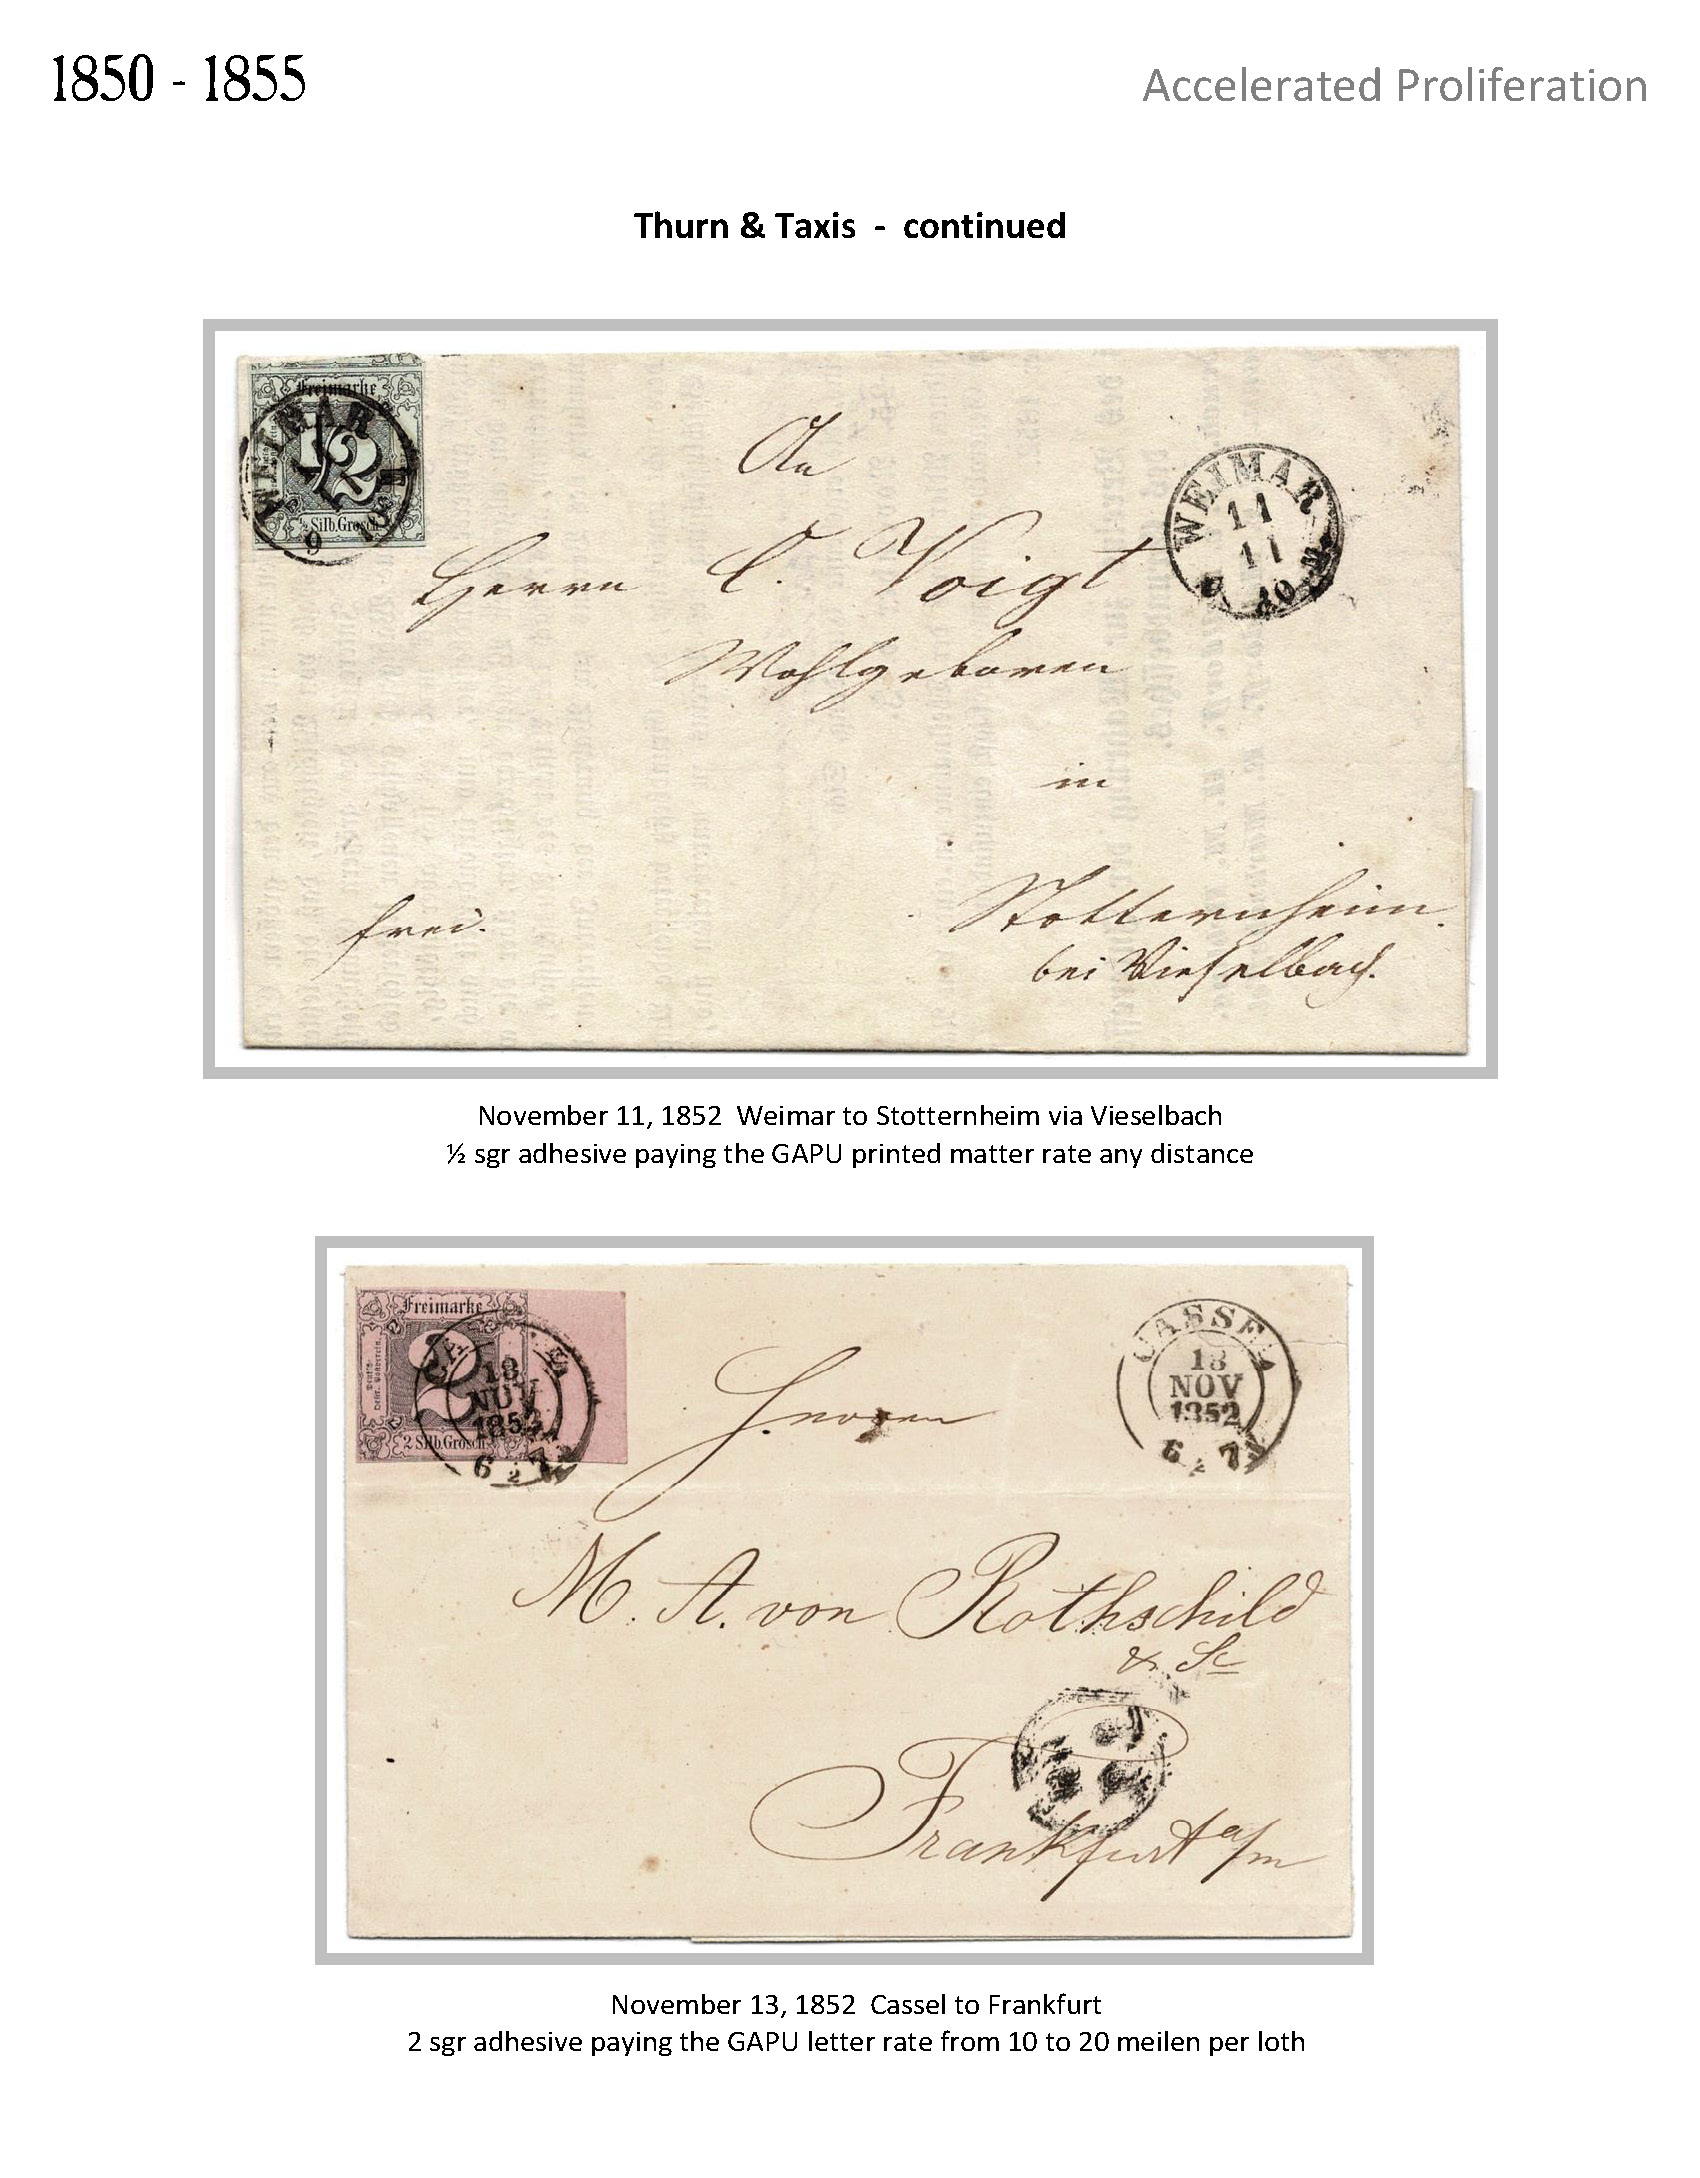 1850 - 1855
Accelerated Proliferation
Thurn & Taxis - continued
Freimarke
1/2
½ Silb.Grosch
WEIMAR
9
WEIMAR
11
11
An
Herrn C. Voigt
Wohlgeboren
in
Stotternheim.
bei Vieselbach.
frei.
November 11, 1852 Weimar to Stotternheim via Vieselbach
½ sgr adhesive paying the GAPU printed matter rate any distance
Freimarke
2
2 Silb.Grosch
13
NOV
1852
6 ½ 7
CASSEL
13
NOV
1352
6 ½ 7
Herren
M. A. von Rothschild
&
Frankfurt a/m
November 13, 1852 Cassel to Frankfurt
2 sgr adhesive paying the GAPU letter rate from 10 to 20 meilen per loth